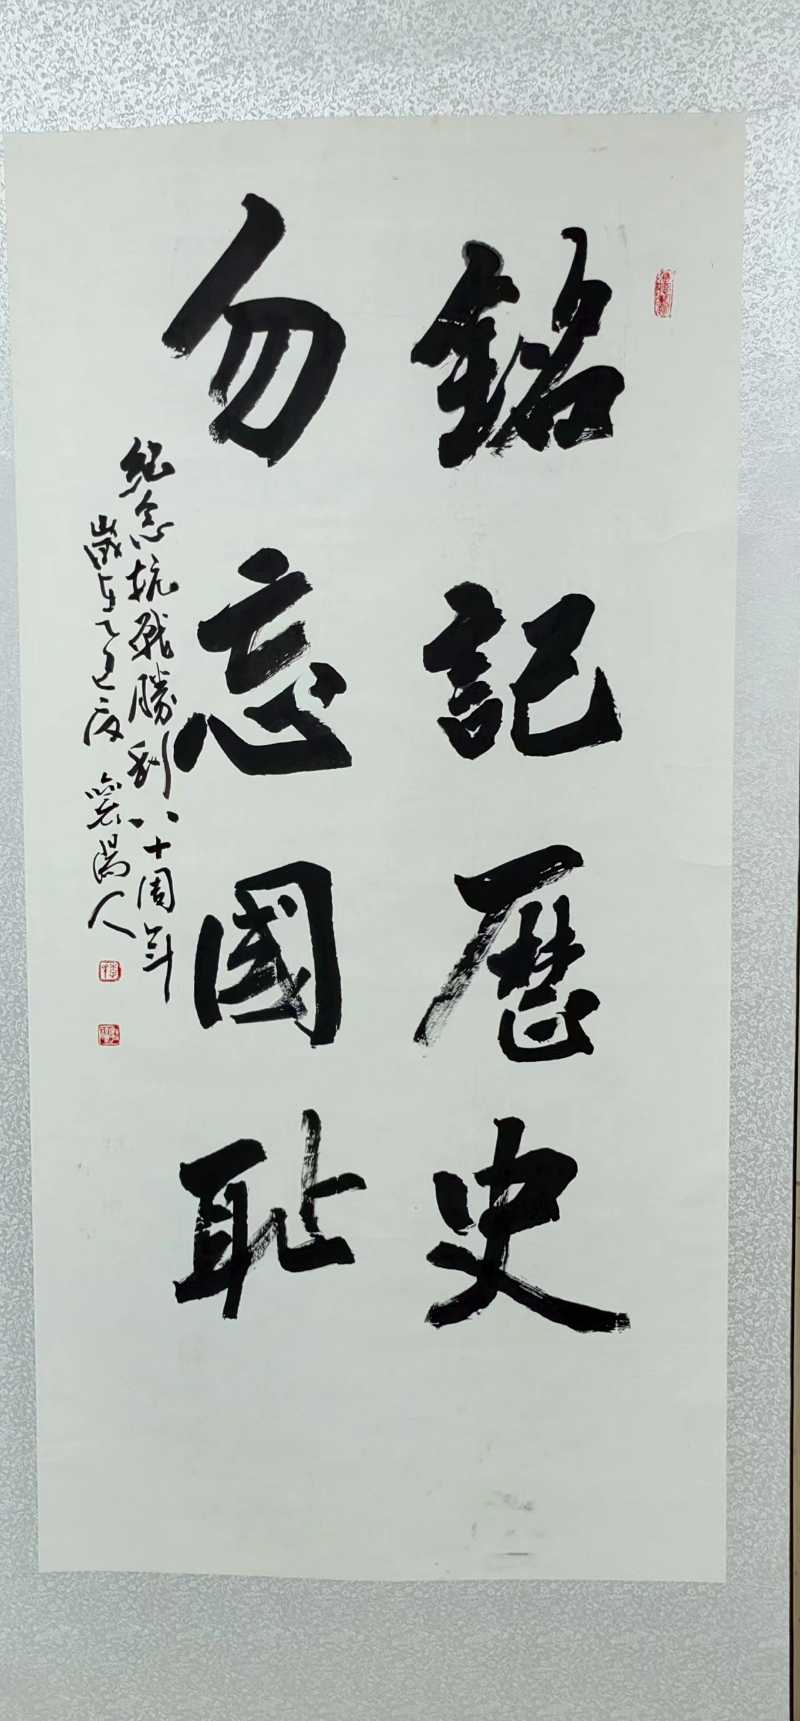 銘記歷史
勿忘國耻
紀念抗戰勝利八十周年
歲在乙巳夏 襄陽人